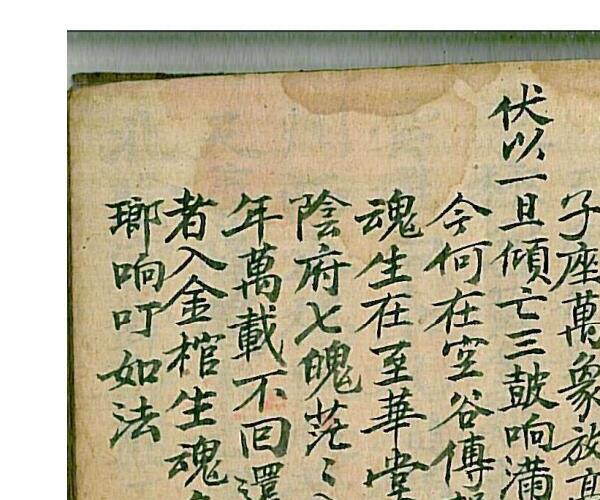 子座萬象放
伏以一旦傾亡三鼓响滿
今何在空谷傳
魂生在至華堂
陰府七魄茫〻
年萬載不回還
者入金棺生魂
瑯响叮如法